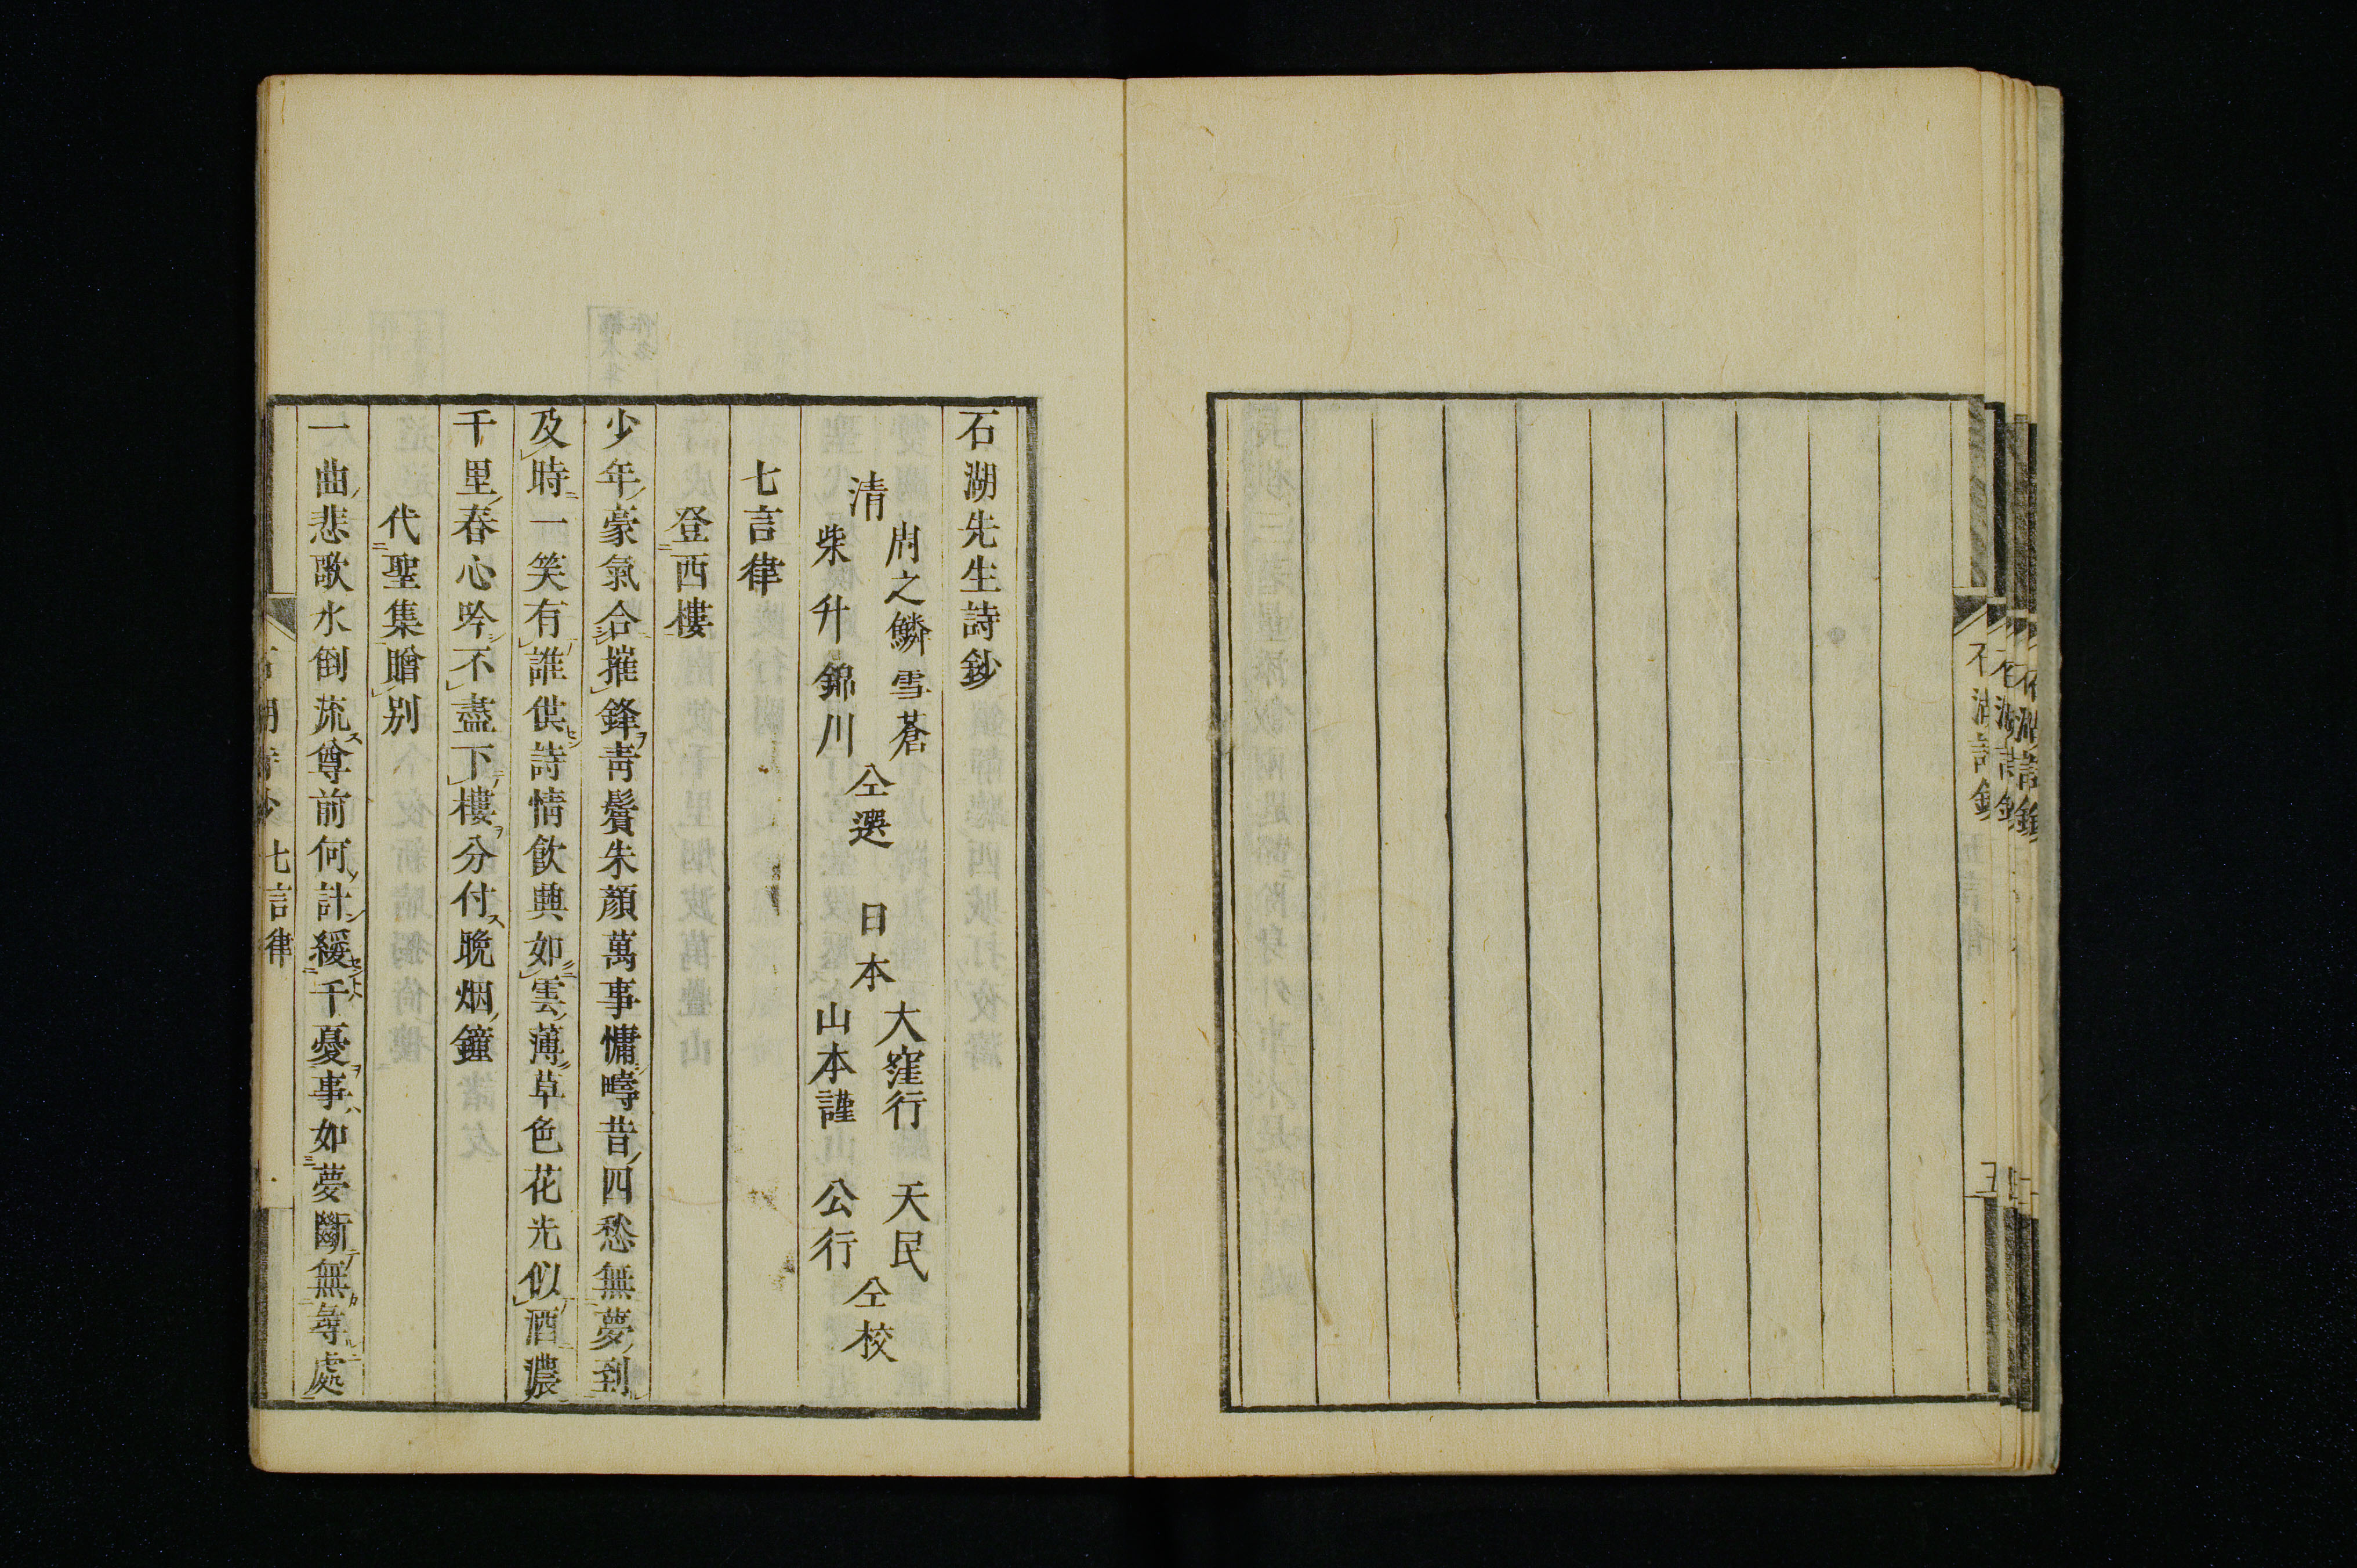 石湖詩鈔
五
石湖先生詩鈔
清
周之鱗雪蒼
柴升錦川
仝選
日本
大窪行天民
山本謹公行
仝校
七言律
登西樓
少年豪氣合摧鋒青鬢朱顏萬事慵疇昔四愁無夢到
及時一笑有誰供詩情飲興如雲薄草色花光似酒濃
千里春心吟不盡下樓分付晩烟鐘
代聖集贈别
一曲悲歌水倒流尊前何計緩千憂事如夢斷無尋處
七言律